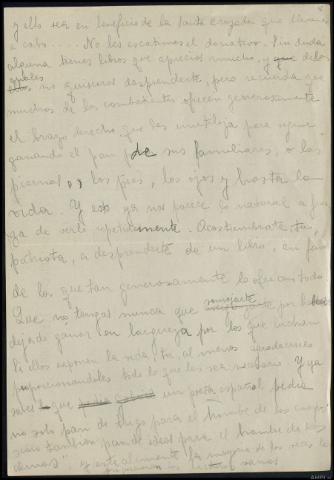 y ello sea en beneficio de la Santa Cruzada que llevamos
a cabo.... No les escatimes el donativo. Sin duda
alguna tienes libros que aprecias mucho, y de los
no quisieras desprenderte, pero recuerda que
muchos de los combatientes ofrecen generosamente
el brazo derecho que les para seguir
ganando el pan de sus familiares, o las
piernas, o los pies, los ojos y hasta la
vida. Y eso ya nos parece lo natural a fuer-
za de verlo repetidamente. Acostúmbrate tú,
, a desprenderte de un libro, en favor
de los que tan generosamente lo ofrecen todo
Que no tengas nunca que sonrojarte por haberte
dejado ganar en largueza por los que luchan
Si ellos exponen la vida, tú, al menos
proporcionándoles todo lo que les sea necesario. Y ya
sabes que un poeta español pedía
no solo pan de trigo para el hombre de los campos
sino también pan de ideal para el hombre de las
, y este alimento la mayoría de las veces lo
sanos